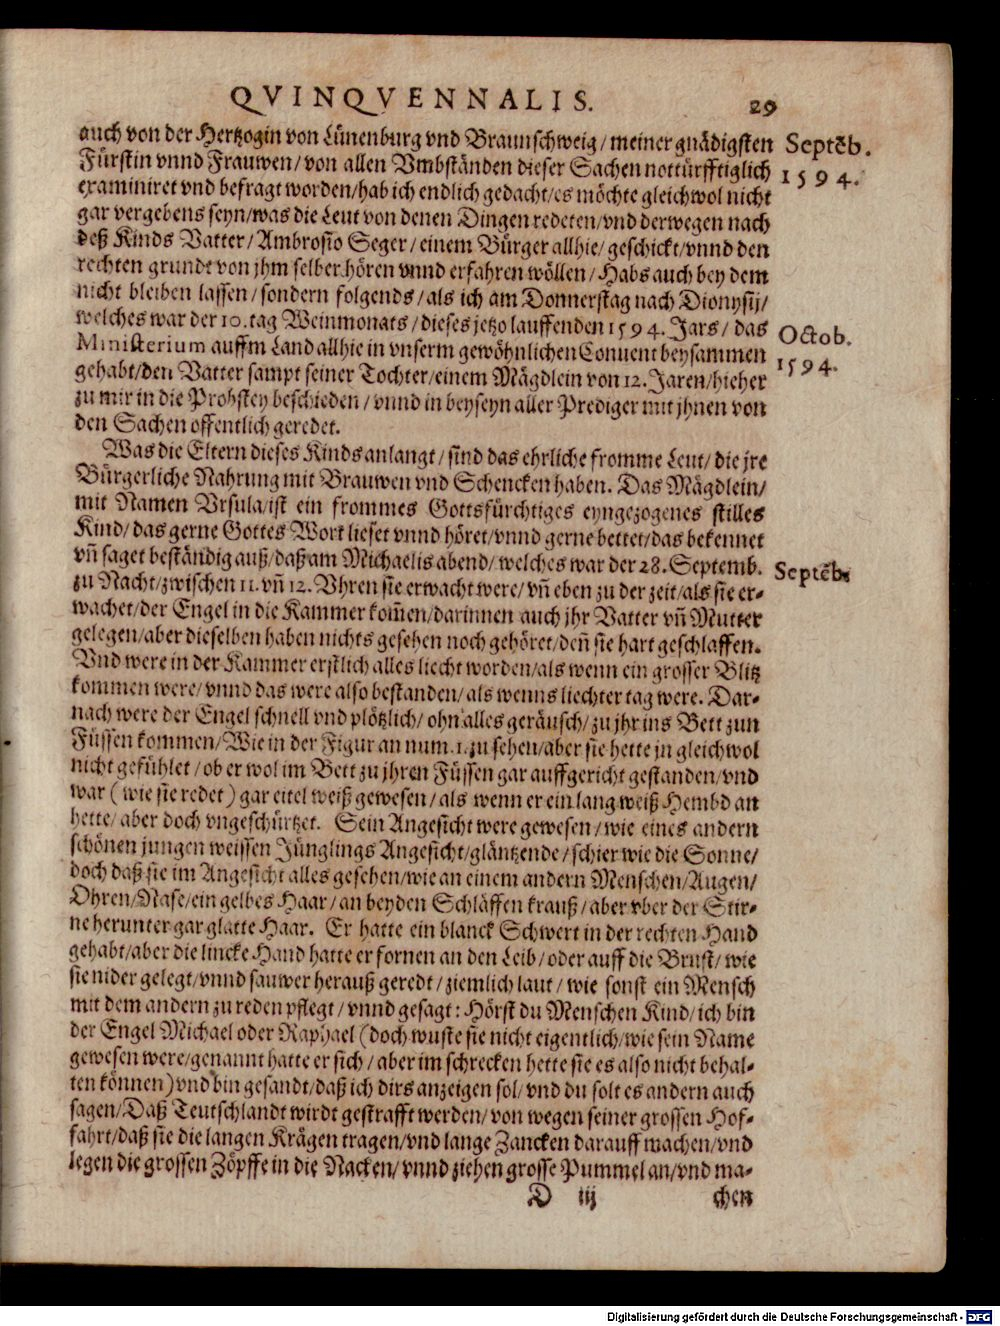 QVINQVENNALIS. 29
auch von der Hertzogin von Lünenburg vnd Braunschweig / meiner gnädigsten
Fürstin vnnd Frauwen / von allen Vmbständen dieser Sachen nottürfftiglich
examiniret vnd befragt worden / hab ich endlich gedacht / es möchte gleichwol nicht
gar vergebens seyn / was die Leut von denen Dingen redeten / vnd derwegen nach
deß Kinds Vatter / Ambrosio Seger / einem Bürger allhie / geschickt / vnnd den
rechten grundt von jhm selber hören vnnd erfahren wöllen / Habs auch bey dem
nicht bleiben lassen / sondern folgends / als ich am Donnerstag nach Dionysij /
welches war der 10. tag Weinmonats / dieses jetzo lauffenden 1594. Jars / das
Ministerium auffm Land allhie in vnserm gewöhnlichen Conuent beysammen
gehabt / den Vatter sampt seiner Tochter / einem Mägdlein von 12. Jaren / hieher
zu mir in die Probstey beschieden / vnnd in beyseyn aller Prediger mit jhnen von
den Sachen offentlich geredet.
Was die Eltern dieses Kinds anlangt / sind das ehrliche fromme Leut / die jre
Bürgerliche Nahrung mit Brauwen vnd Schencken haben. Das Mägdlein /
mit Namen Vrsula / ist ein frommes Gottsfürchtiges eyngezogenes stilles
Kind / das gerne Gottes Wort lieset vnnd höret / vnnd gerne bettet / das bekennet
vñ saget beständig auß / daß am Michaelis abend / welches war der 28. Septemb.
zu Nacht / zwischen 11. vñ 12. Vhren sie erwacht were / vñ eben zu der zeit / als sie er-
wachet / der Engel in die Kammer kom̃en / darinnen auch jhr Vatter vñ Mutter
gelegen / aber dieselben haben nichts gesehen noch gehöret / deñ sie hart geschlaffen.
Vnd were in der Kammer erstlich alles liecht worden / als wenn ein grosser Blitz
kommen were / vnnd das were also bestanden / als wenns liechter tag were. Dar-
nach were der Engel schnell vnd plötzlich / ohn alles geräusch / zu jhr ins Bett zun
Füssen kommen / Wie in der Figur an num. 1. zu sehen / aber sie hette jn gleichwol
nicht gefühlet / ob er wol im Bett zu jhren Füssen gar auffgericht gestanden / vnd
war ( wie sie redet ) gar eitel weiß gewesen / als wenn er ein lang weiß Hembd an
hette / aber doch vngeschürtzet. Sein Angesicht were gewesen / wie eines andern
schönen jungen weissen Jünglings Angesicht / gläntzende / schier wie die Sonne /
doch daß sie im Angesicht alles gesehen / wie an einem andern Menschen / Augen /
Ohren / Nase / ein gelbes Haar / an beyden Schläffen krauß / aber vber der Stir-
ne herunter gar glatte Haar. Er hatte ein blanck Schwert in der rechten Hand
gehabt / aber die lincke Hand hatte er fornen an den Leib / oder auff die Brust / wie
sie nider gelegt / vnnd sauwer herauß geredt / ziemlich laut / wie sonst ein Mensch
mit dem andern zu reden pflegt / vnnd gesagt : Hörst du Menschen Kind / ich bin
der Engel Michael oder Raphael ( doch wuste sie nicht eigentlich / wie sein Name
gewesen were / genannt hatte er sich / aber im schrecken hette sie es also nicht behal-
ten können ) vnd bin gesandt / daß ich dirs anzeigen sol / vnd du solt es andern auch
sagen / Daß Teutschlandt wirdt gestrafft werden / von wegen seiner grossen Hof-
fahrt / daß sie die langen Krägen tragen / vnd lange Zancken darauff machen / vnd
legen die grossen Zöpffe in die Nacken / vnnd ziehen grosse Pummel an / vnd ma-
D iij chen
Septẽb.
1594.
Octob.
1594.
Septẽb.
Digitalisierung gefördert durch die Deutsche Forschungsgemeinschaft - DFG